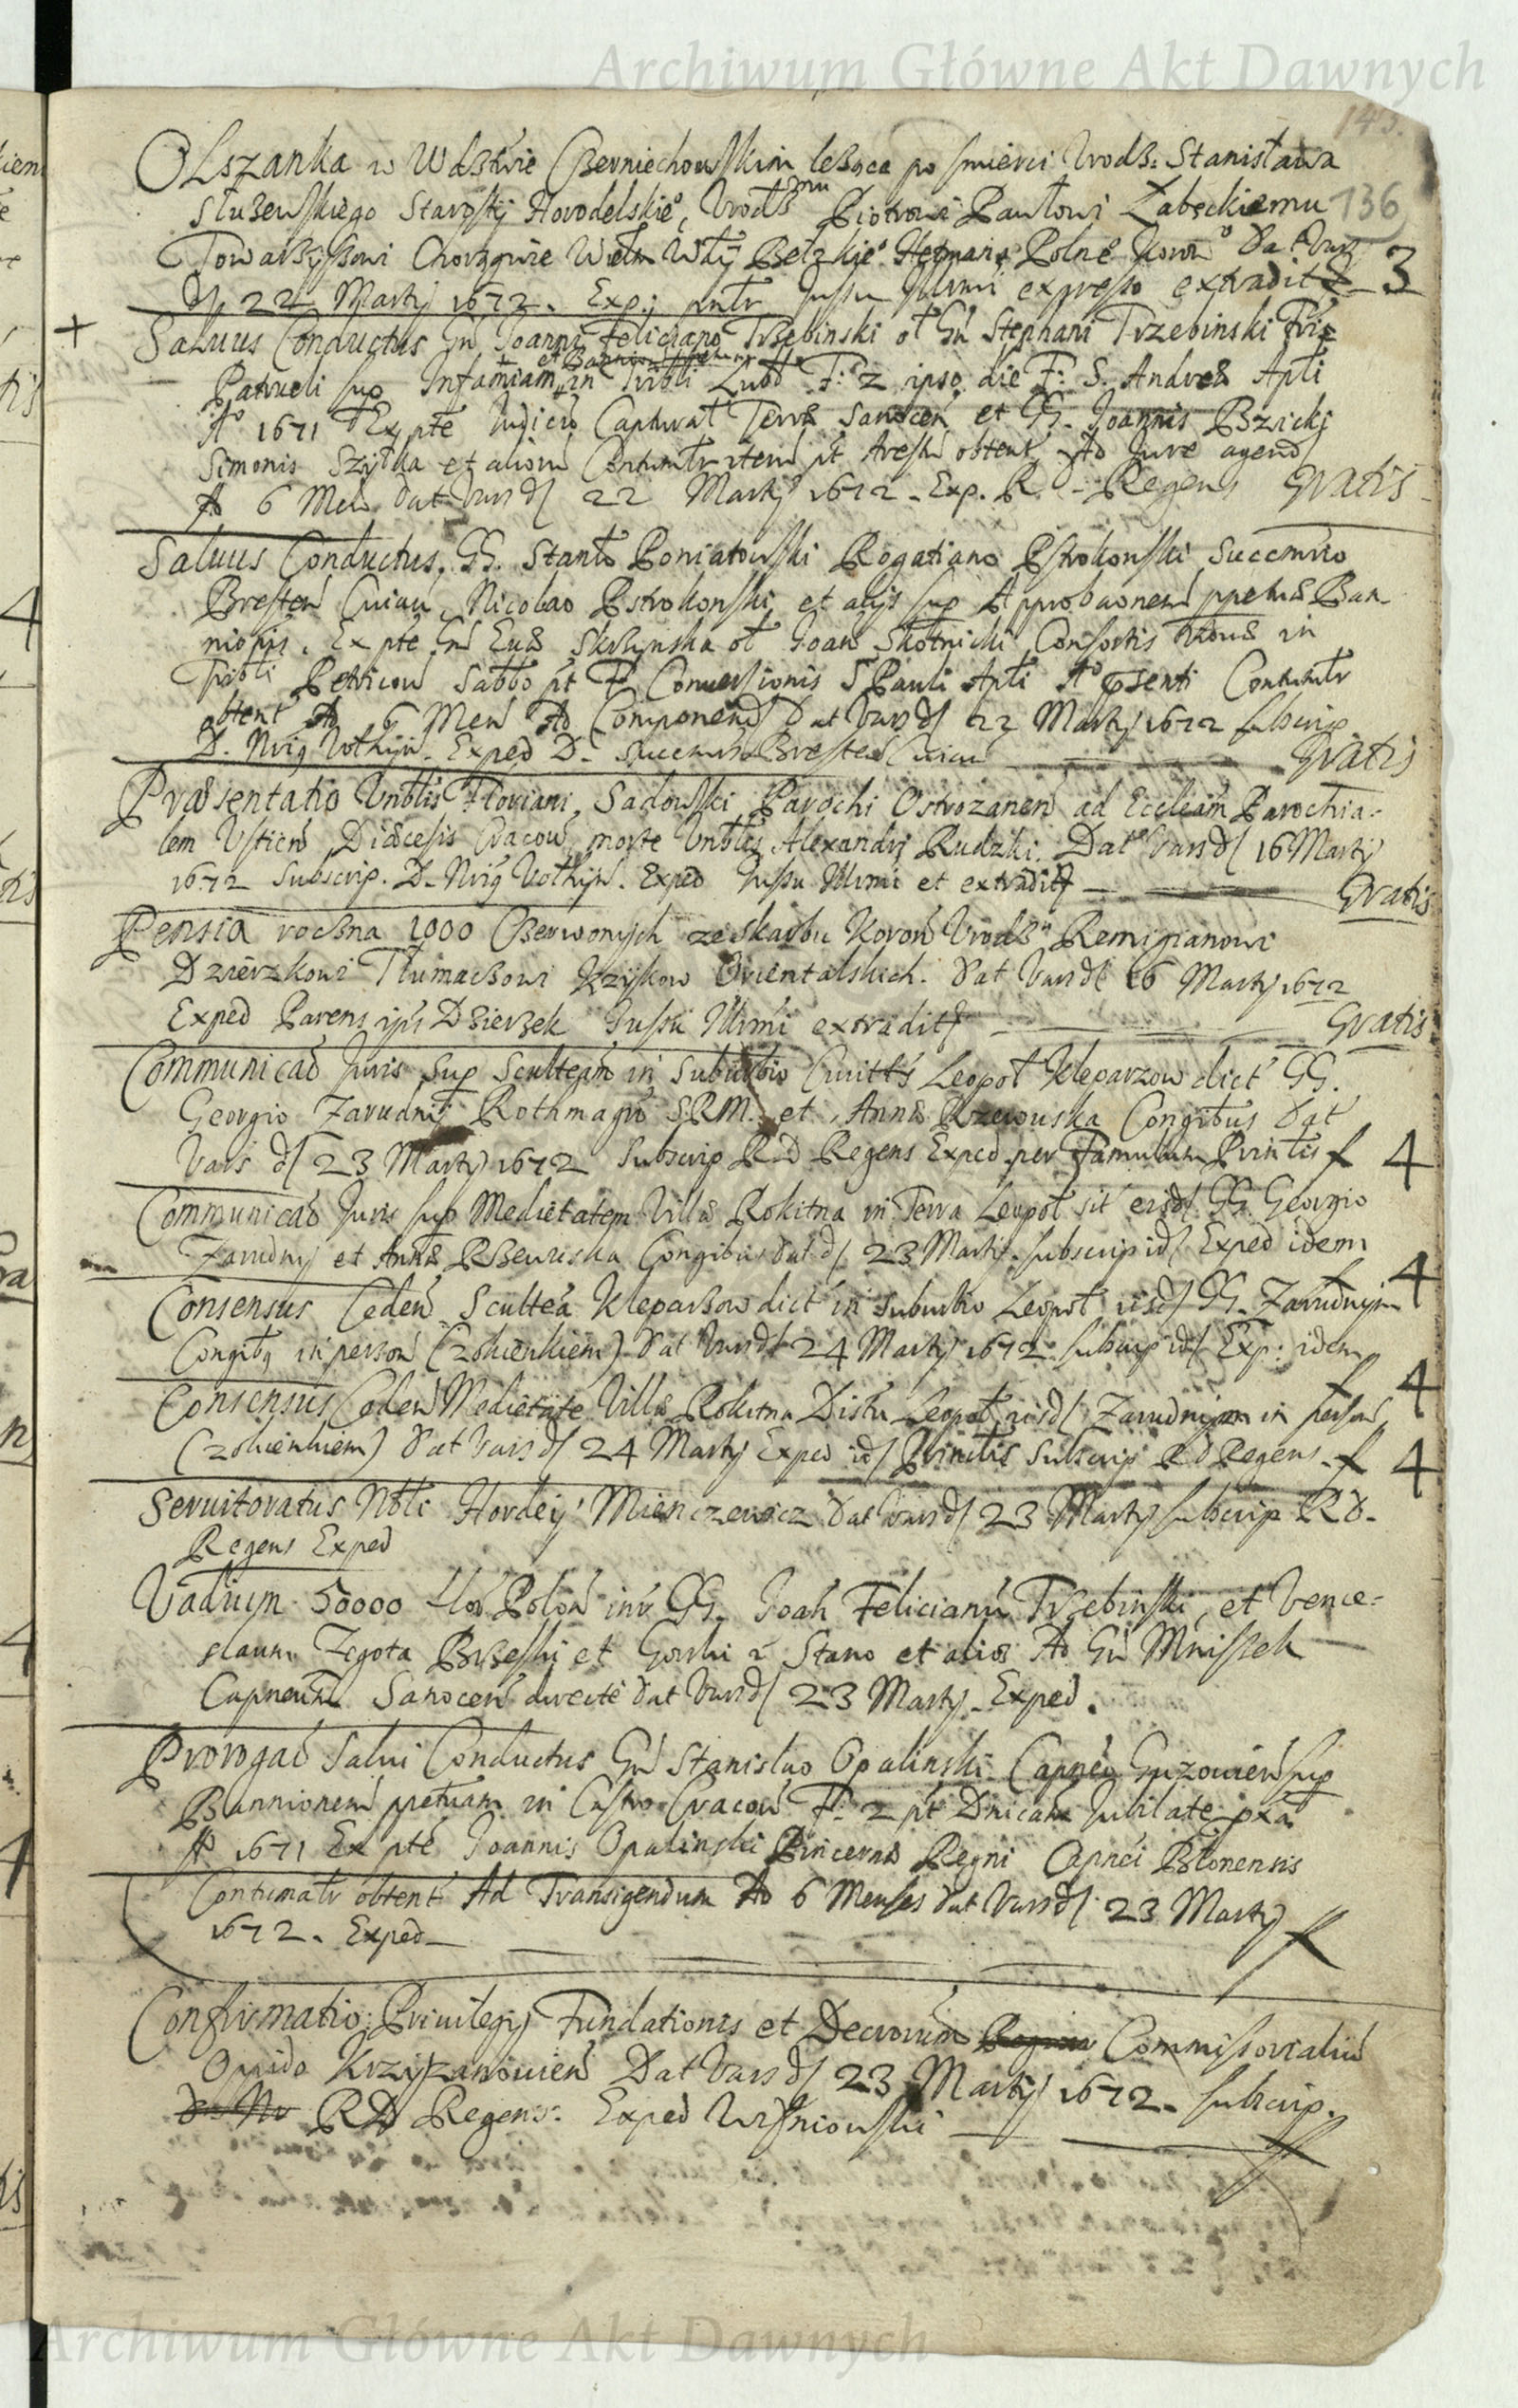 Archiwum Główne Akt Dawnych
143.
136
Olszanka w Wdztwie Czerniechowskim leżąca po śmierci Urodz: Stanisława
Służewskiego Starosty Horodelskie°, Urodz^mu Piotrowi Pawłowi Zabęckiemu
Towarzyszowi Chorągwie Wdy Bełzkie° Hetmana Polne° Koron° Dat Vars
dj 22 Martij 1672. Exp: jussu Illrmi expresso extradit 3
+ Saluus Conductus Gn Joanni Feliciano Trzebinski ol Gn Stephani Trzebinski
Patrueli sup Infamiam in Tribli Lubl F: 2 ipso die F: S. Andreæ Apli
A° 1671 Ex pte Judicii Captural Terræ Sanocen et GG. Joannis Bzicki
Simonis et aliorn obtent Ad Jure agend
A 6 Men Dat Vars dj 22 Martij 1672 - Exp. R. - Regens Gratis
Saluus Conductus GG. Stanło Poniatowski Rogatiano Pstrokonski Succmrio
Bresten Cuiau, Nicolao Pstrokonski et alijs sup Approbaonem ppetuæ Ban-
niois. Ex pte Gn Euæ Skrzynska ol Joan Skotnicki Consortis Viduæ in
Tribli Petricou Sabbo pt F Conuersionis S Pauli Apli A° psenti Contumlr
obtent Ad 6 Men Ad Componend Dat Vars dj 22 Martij 1672 subscrip
D. Nrig Vothijn. Exped D. Succmrio Bresten Cuiau Gratis
Præsentatio Vnblis Floriani Sadowski Parochi Ostrozanen ad Eccleam Parochia-
lem Vsticen Diœcesis Cracou morte Vnblis Alexandri Rudzki. Dat Vars dj 16 Martij
1672 Subscrip. D. Nrig Vothijn. Exped Jussu Illrmi et extradit Gratis
Pensia roczna 1000 Czerwonych ze skarbu Koron Urodz^u Remigianowi
Dzierzkowi Tłumaczowi Języków Orientalskich. Dat Vars dj 16 Martij 1672
Exped Parens ipi Dzierzek Jussu Illrmi extradit Gratis
Communicao Juris sup Sculteam in Suburbio Ciuitts Leopol Kleparzow dict GG.
Georgio Zarudnij Rothmagro S.R.M. et Annæ Rzewuska Congibus Dat
Vars dj 23 Martij 1672 Subscrip R D Regens Exped per Famulum Prinlis f 4
Communicao Juris sup Medietatem Villæ Rokitna in Terra Leopol sit eisd GG. Georgio
Zarudnij et Annæ Rzewuska Congibus Dat dj 23 Martij subscrip id Exped idem
f 4
Consensus Ceden Scultea Kleparzow dict in Suburbio Leopol iisd GG. Zarudnym
Congibq in person (z okienkiem) Dat Vars dj 24 Martij 1672 subscrip id Exp: idem
f 4
Consensus Ceden Medietate Villæ Rokitna Distu Leopol iisd Zarudnym in person
(z okienkiem) Dat Vars dj 24 Martij Exped id Prinlis Subscrip R D Regens. f 4
Seruitoratus Nbli Hordeij Mienczewicz Dat Vars dj 23 Martij subscrip R D.
Regens Exped
Vadium 50000 Flor Polon intr GG. Joan Felicianu Trzebinski, et Vence-
slaum Zegota Brzeski et Gorski 2 Stano et alios Ad Gn Mniszek
Capneum Sanocen directe Dat Vars dj 23 Martij. Exped.
Prorogao Salui Conductus Gn Stanislao Opalinski Capneo Guzouien sup
Bannionem ppetuam in Castro Cracou F: 2 pt Dnicam Jubilate pxa
A° 1671 Ex pte Joannis Opalinski Pincernæ Regni Capnei Blonensis
Contumalr obtent Ad Transigendum Ad 6 Menses Dat Vars dj 23 Martij
1672. Exped f
Confirmatio Priuilegij Fundationis et Decretorum Commissorialiu
Oppido Krzyzanouien Dat Vars dj 23 Martij 1672. subscrip.
R D Regens. Exped Wisniowski f
Archiwum Główne Akt Dawnych